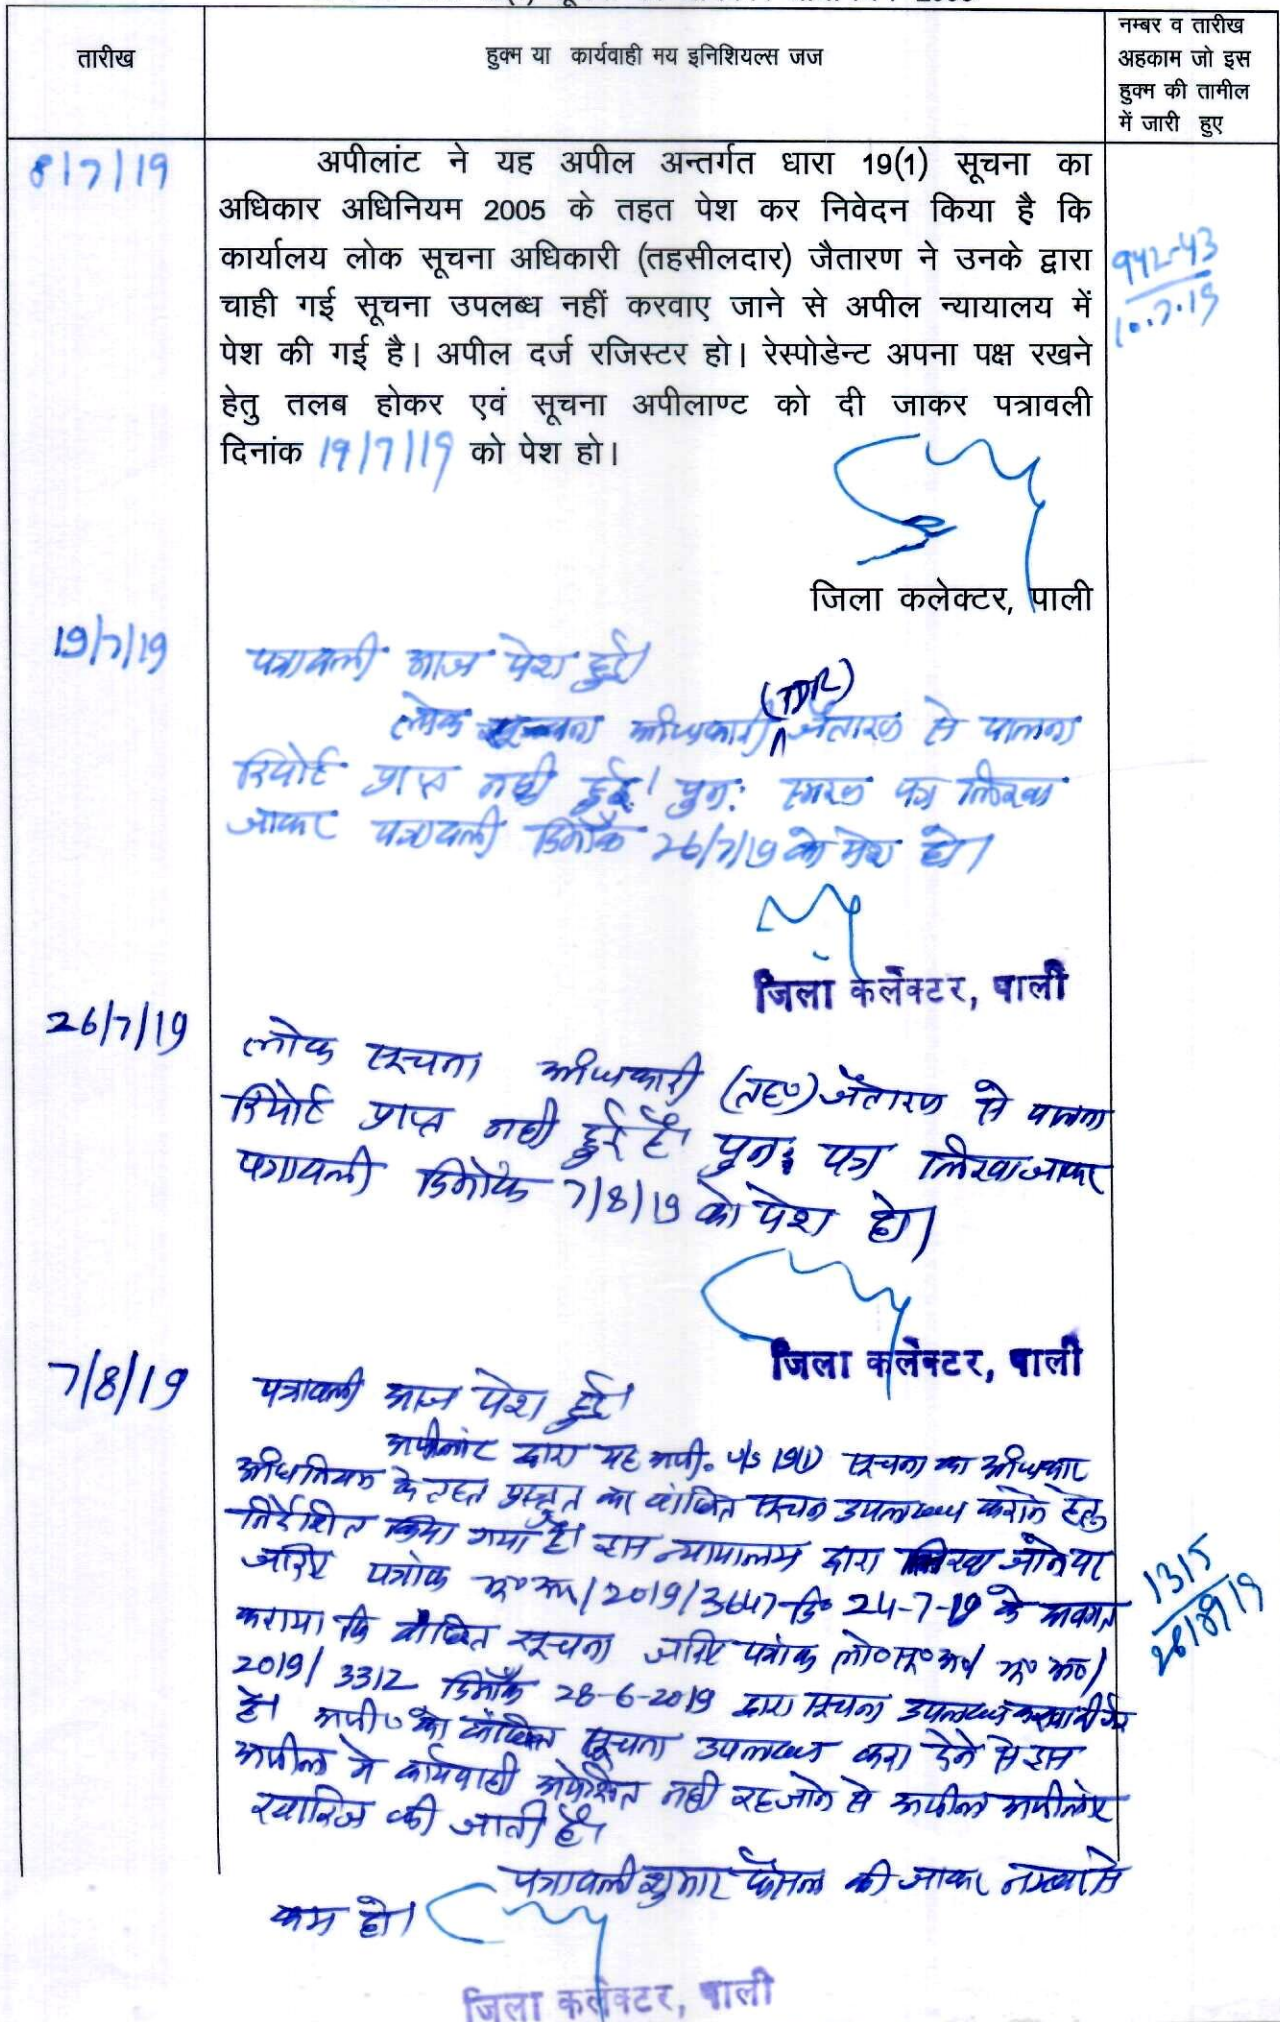 तारीख
हुक्म या कार्यवाही मय इनिशियल्स जज
नम्बर व तारीख
अहकाम जो इस
हुक्म की तामील
में जारी हुए
8/7/19
अपीलांट ने यह अपील अन्तर्गत धारा 19(1) सूचना का
अधिकार अधिनियम 2005 के तहत पेश कर निवेदन किया है कि
कार्यालय लोक सूचना अधिकारी (तहसीलदार) जैतारण ने उनके द्वारा
चाही गई सूचना उपलब्ध नहीं करवाए जाने से अपील न्यायालय में
पेश की गई है। अपील दर्ज रजिस्टर हो। रेस्पोडेन्ट अपना पक्ष रखने
हेतु तलब होकर एवं सूचना अपीलाण्ट को दी जाकर पत्रावली
दिनांक 19/7/19 को पेश हो।
942-43
10.7.19
जिला कलेक्टर, पाली
19/7/19
पत्रावली आज पेश हुई।
(TDR)
लोक सूचना अधिकारी जैतारण से पालना
रिपोर्ट प्राप्त नही हुई। पुन: स्मरण पत्र लिखा
जाकर पत्रावली दिनाँक 26/7/19 को पेश हो।
जिला कलेक्टर, पाली
26/7/19
लोक सूचना अधिकारी (तह०) जैतारण से पालना
रिपोर्ट प्राप्त नही हुई है। पुन: पत्र लिखा जाकर
पत्रावली दिनाँक 7/8/19 को पेश हो।
जिला कलेक्टर, पाली
7/8/19
पत्रावली आज पेश हुई।
अपीलांट द्वारा यह अपी० u/s 19(1) सूचना का अधिकार
अधिनियम के तहत प्रस्तुत कर वांछित सूचना उपलब्ध कराने हेतु
निर्देशित किया गया है। इस न्यायालय द्वारा लिखा जाने पर
जरिए पत्रांक /2019/3647 दि० 24-7-19 के अवगत
कराया कि वांछित सूचना जरिए पत्रांक लो०सू०अ०/
2019/3312 दिनाँक 28-6-2019 द्वारा सूचना उपलब्ध करवा दी गई
है। अपी० को वांछित सूचना उपलब्ध करा देने से इस
अपील मे कार्यवाही अपेक्षित नही रह जाने से अपील अपीलांट
खारिज की जाती है।
1315
28/8/19
पत्रावली शुमार फैसल की जाकर नम्बर से
कम हो।
जिला कलेक्टर, पाली